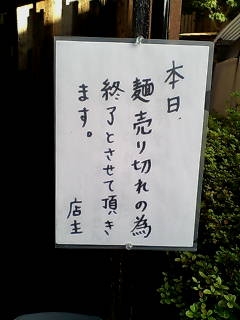 本日
麺売り切れの為
終了とさせて頂き
ます。
店主